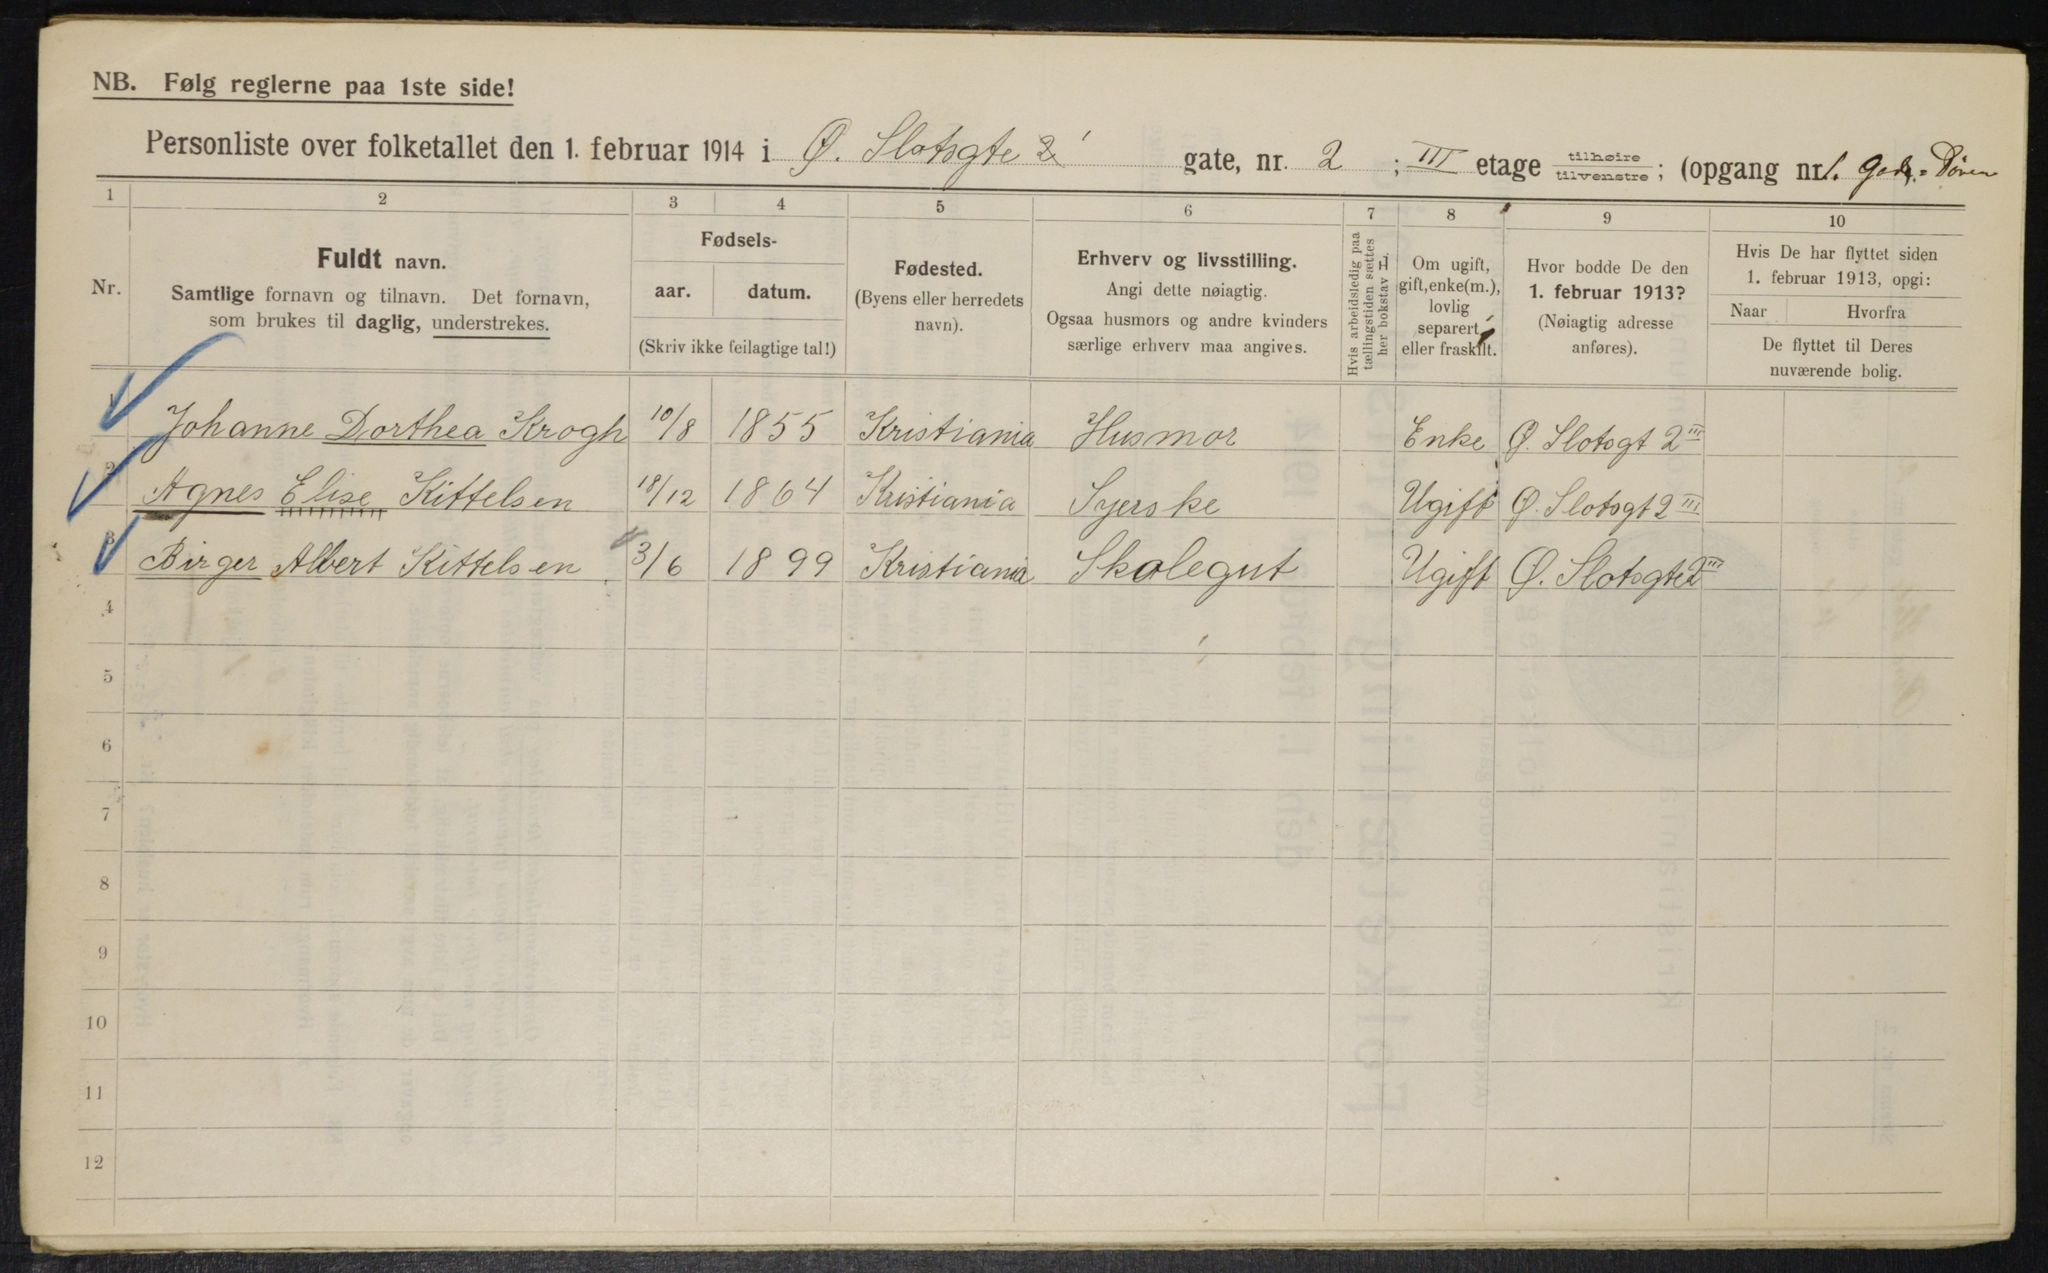 NB. Følg reglerne paa 1ste side!
Personliste over folketallet den 1. februar 1914 i Ø. Slotsgte 2 gate, nr. 2 ; III etage tilhøire tilvenstre ; (opgang nr. 1.
1 2 3 4 5 6 7 8 9 10
Nr.
Fuldt navn.
Samtlige fornavn og tilnavn. Det fornavn,
som brukes til daglig, understrekes.
Fødsels-
aar. datum.
(Skriv ikke feilagtige tal!)
Fødested.
(Byens eller herredets
navn).
Erhverv og livsstilling.
Angi dette nøiagtig.
Ogsaa husmors og andre kvinders
særlige erhverv maa angives.
Hvis arbeidsledig paa
tællingstiden sættes
her bokstav H
Om ugift,
gift, enke(m.),
lovlig
separert
eller fraskilt.
Hvor bodde De den
1. februar 1913?
(Nøiagtig adresse
anføres).
Hvis De har flyttet siden
1. februar 1913, opgi:
Naar Hvorfra
De flyttet til Deres
nuværende bolig.
1 Johanne Dorthea Krogh 10/8 1855 Kristiania Husmor Enke Ø. Slotsgt 2 III
2 Agnes Elise Kittelsen 18/12 1864 Kristiania Syerske Ugift Ø. Slotsgt 2 III
3 Birger Albert Kittelsen 3/6 1899 Kristiania Skolegut Ugift Ø. Slotsgte 2 III
4
5
6
7
8
9
10
11
12